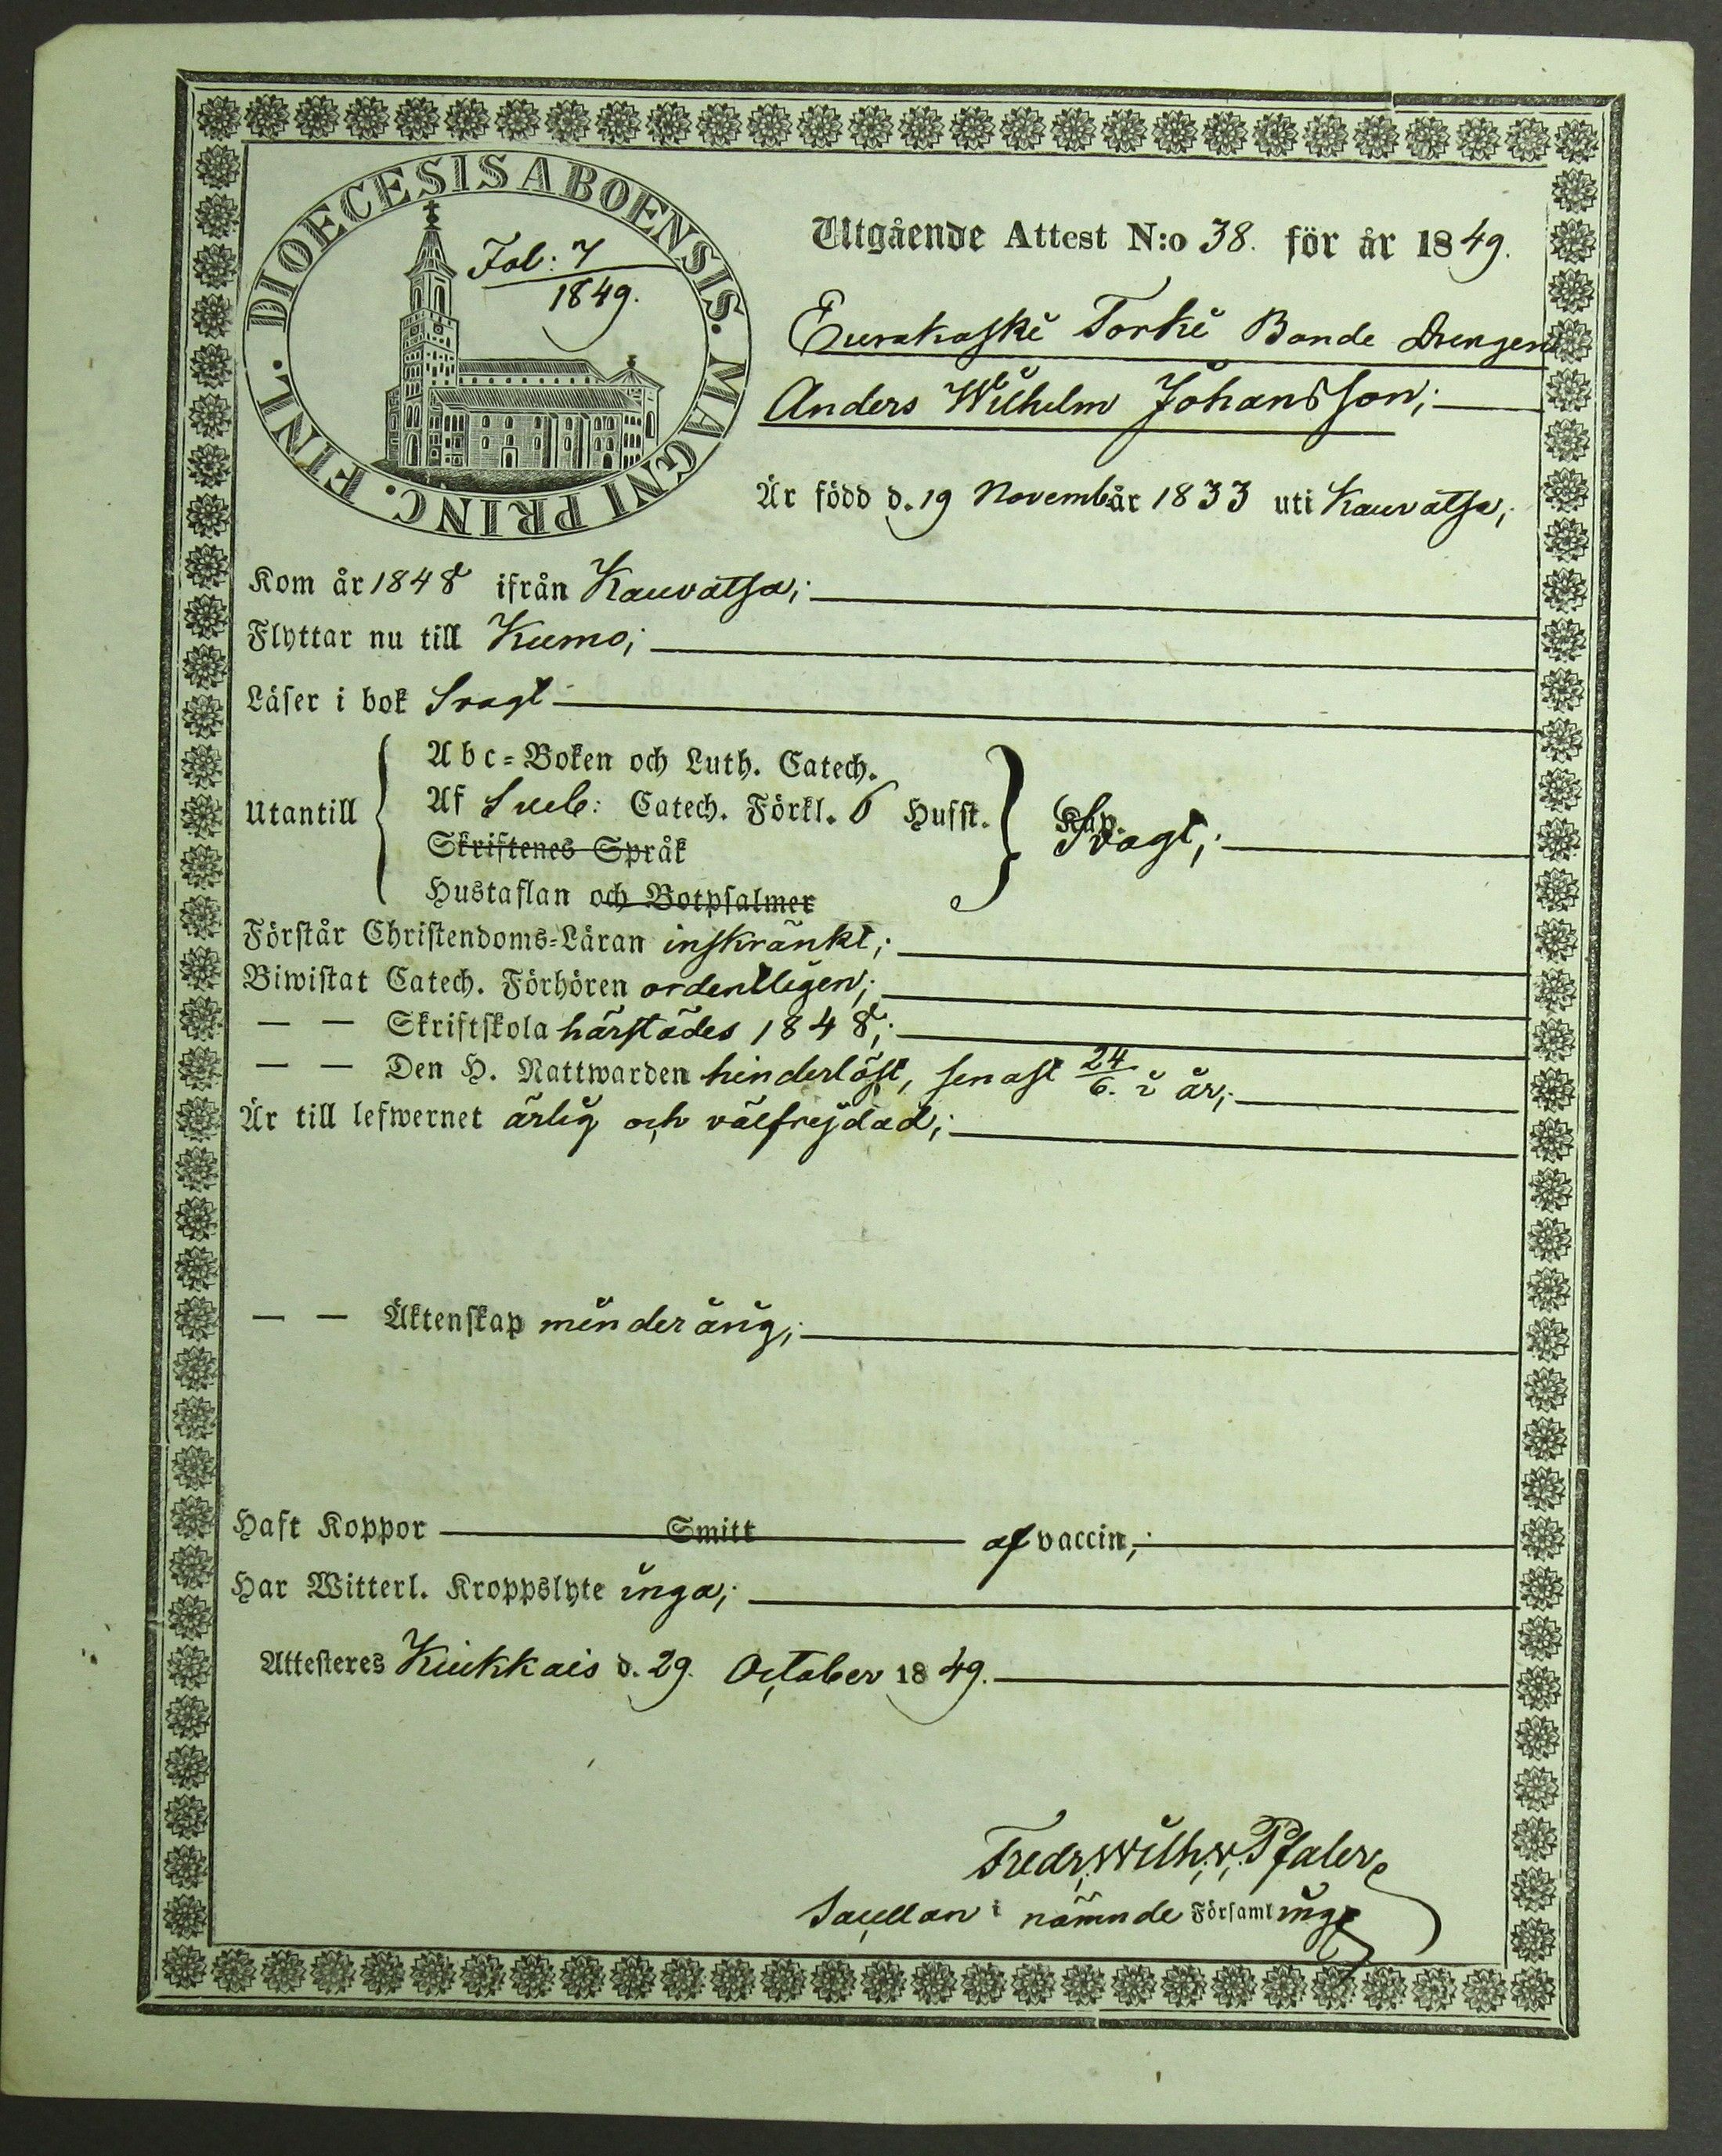 DIOECESIS ABOENSIS. MAGNI PRINC. FINL.
Fol: 7
1849.
Utgående Attest N:o 38. för år 1849.
Eurakoski Torki Bonde Drengen
Anders Wilhelm Johansson;
Är född d. 19 Novemb. år 1833 uti Kauvatsa;
Kom år 1848 ifrån Kauvatsa;
Flyttar nu till Kumo;
Läser i bok Svagt
Utantill
Abc=Boken och Luth. Catech.
Af Sveb: Catech. Förkl. 6 Husst. Kap. Svagt;
Skriftenes Språk
Hustaflan och Botpsalmer
Förstår Christendoms=Läran inskränkt;
Biwistat Catech. Förhören ordentligen;
— — Skriftskola härstädes 1848;
— — Den H. Nattwarden hinderlöst, senast 24/6. i år;
Är till lefwernet ärlig och välfrejdad;
— — Äktenskap minderårig;
Haft Koppor Smitt af vaccin;
Har Witterl. Kroppslyte inga;
Attesteres Kiukkais d. 29. October 1849.
Fredr. Wilh. v. Pfaler
Sacellan i nämnde Församling